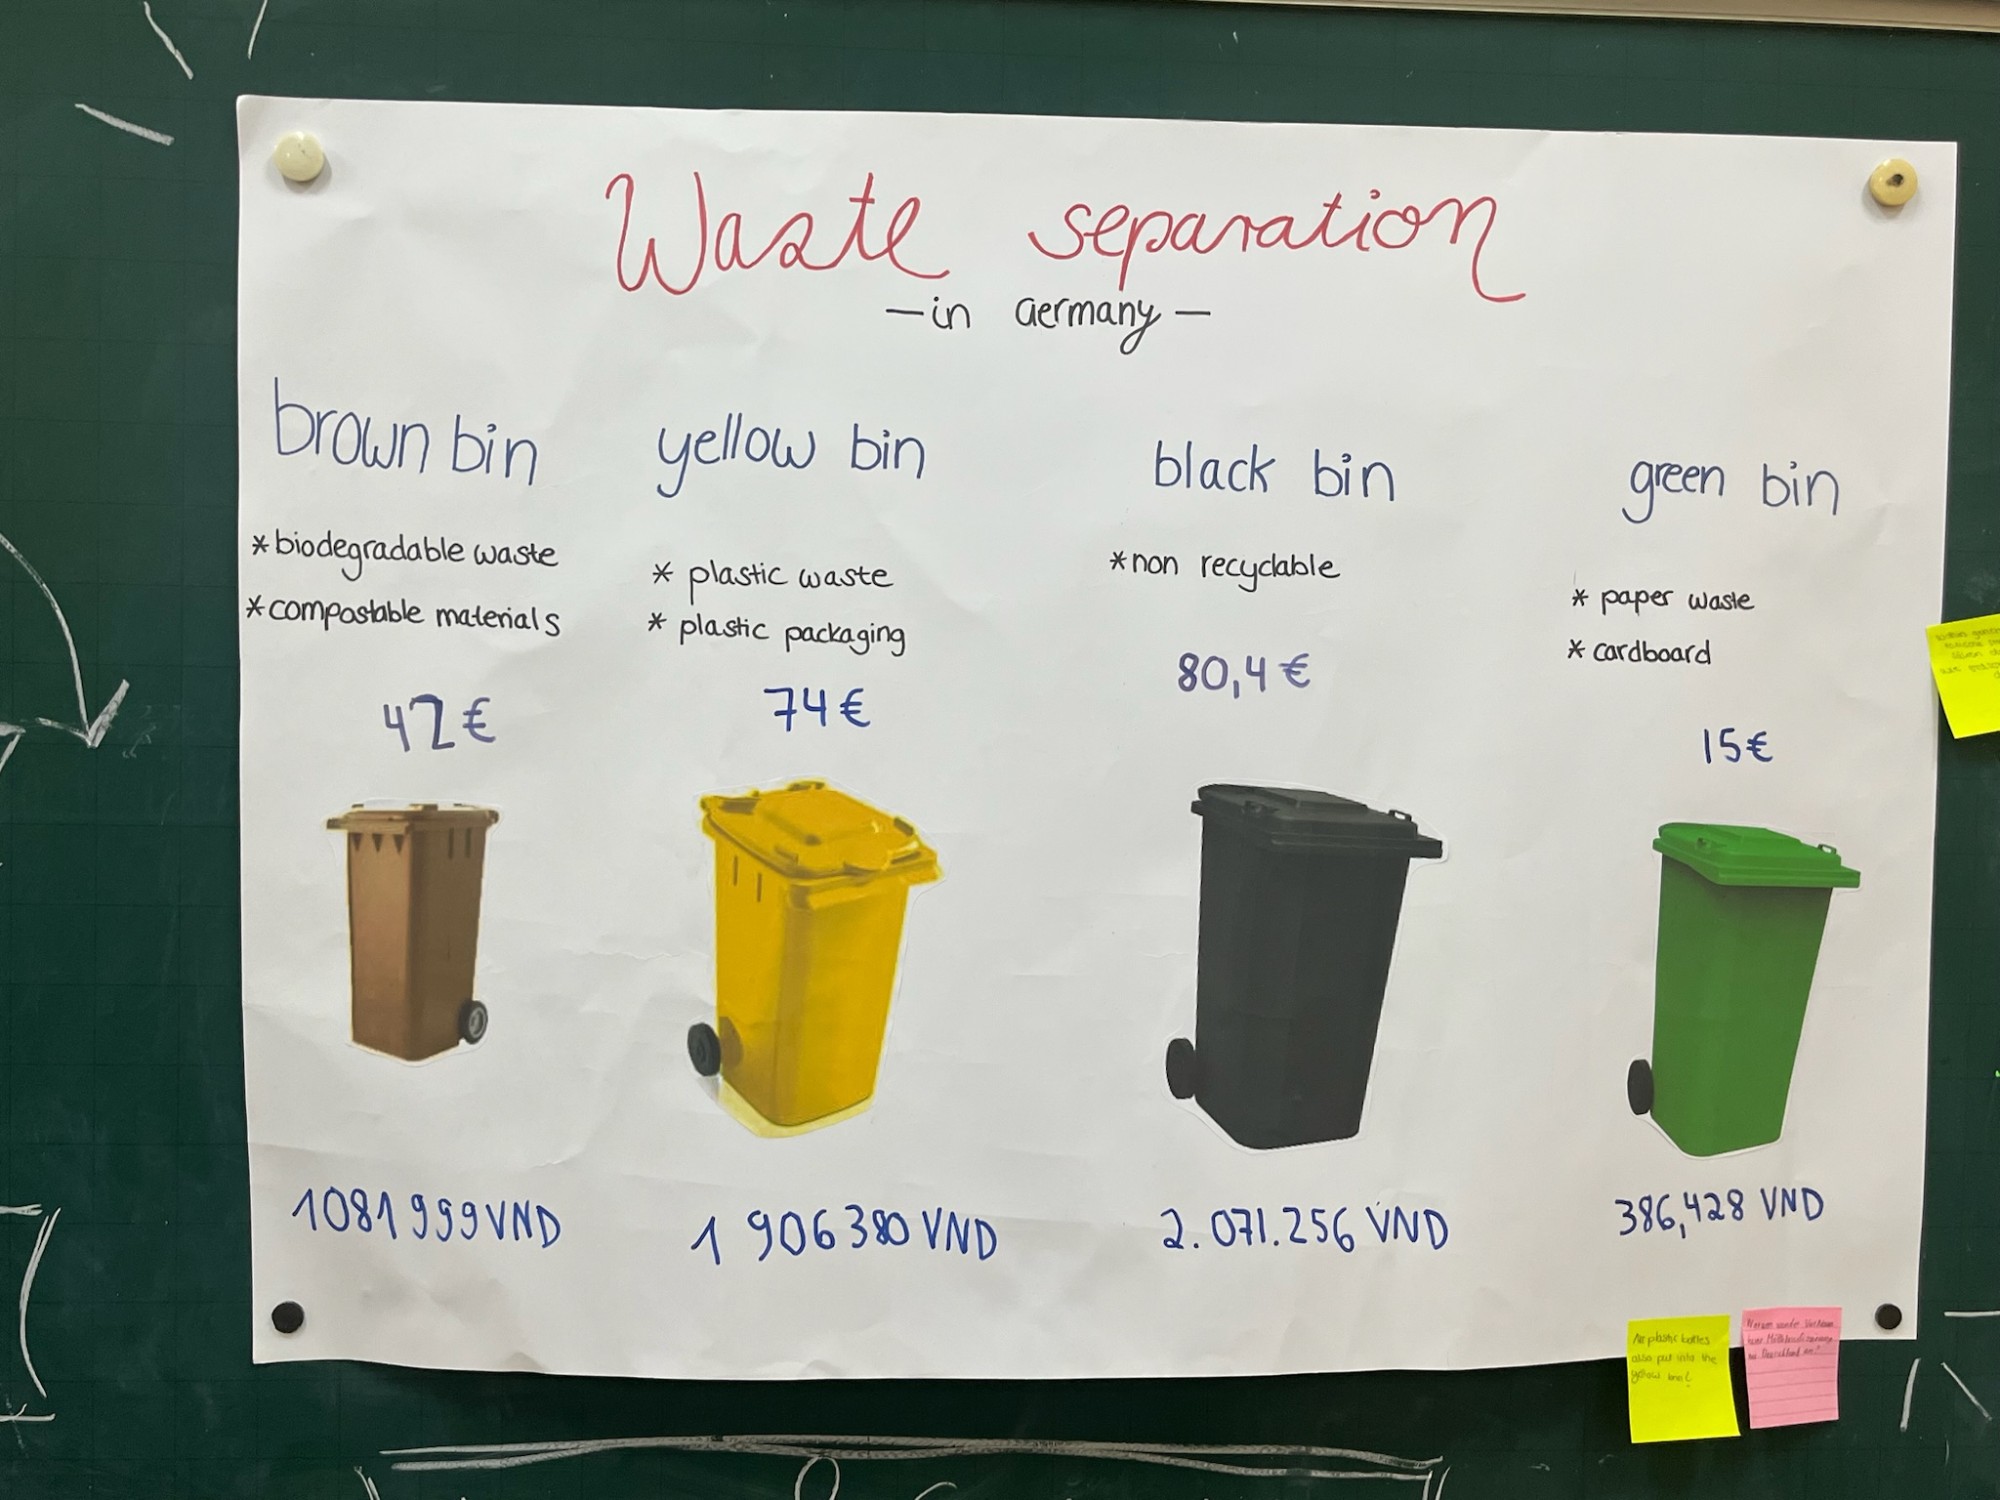 Waste separation
– in Germany –
brown bin
* biodegradable waste
* compostable materials
42€
1081999 VND
yellow bin
* plastic waste
* plastic packaging
74€
1 906 380 VND
black bin
* non recyclable
80,4 €
2.071.256 VND
green bin
* paper waste
* cardboard
15€
386,428 VND
plastic bottles
also put into the
yellow